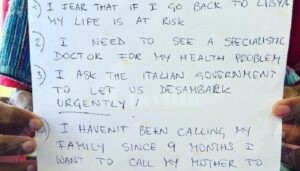 1) I FEAR THAT IF I GO BACK TO LIBYA
MY LIFE IS AT RISK
2) I NEED TO SEE A SPECIALISTIC
DOCTOR FOR MY HEALTH PROBLEM
3) I ASK THE ITALIAN GOVERNMENT
TO LET US DESAMBARK
URGENTLY!
4) I HAVEN'T BEEN CALLING MY
FAMILY SINCE 9 MONTHS I
WANT TO CALL MY MOTHER TO